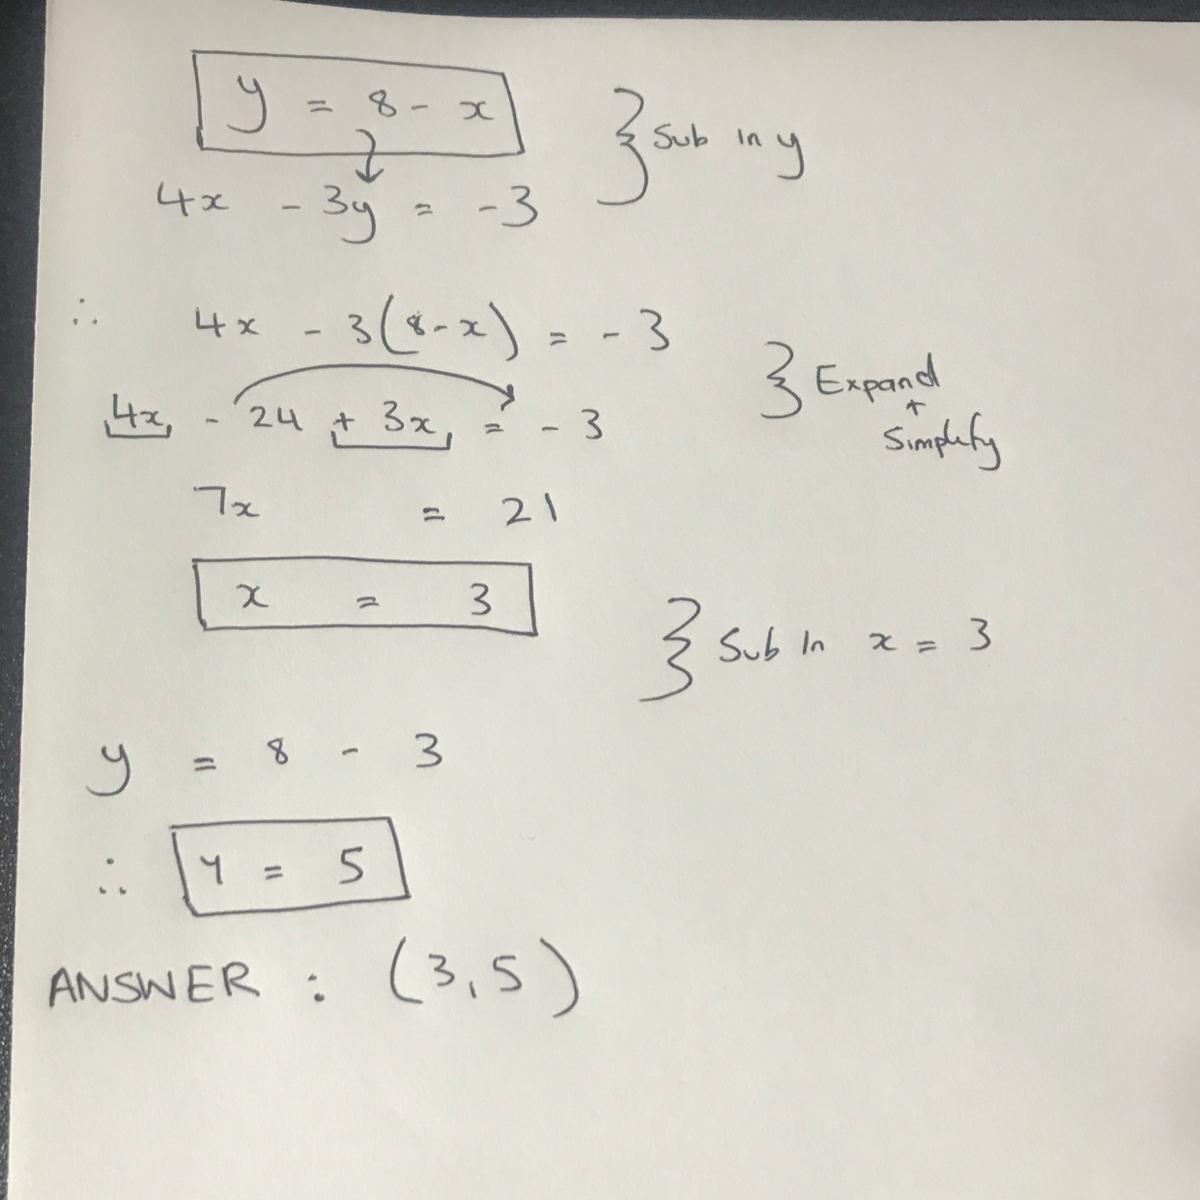 y = 8 - x } Sub in y
4x - 3y = -3
∴ 4x - 3(8-x) = -3
4x - 24 + 3x = -3 } Expand + Simplify
7x = 21
x = 3 } Sub in x = 3
y = 8 - 3
∴ y = 5
ANSWER : (3,5)